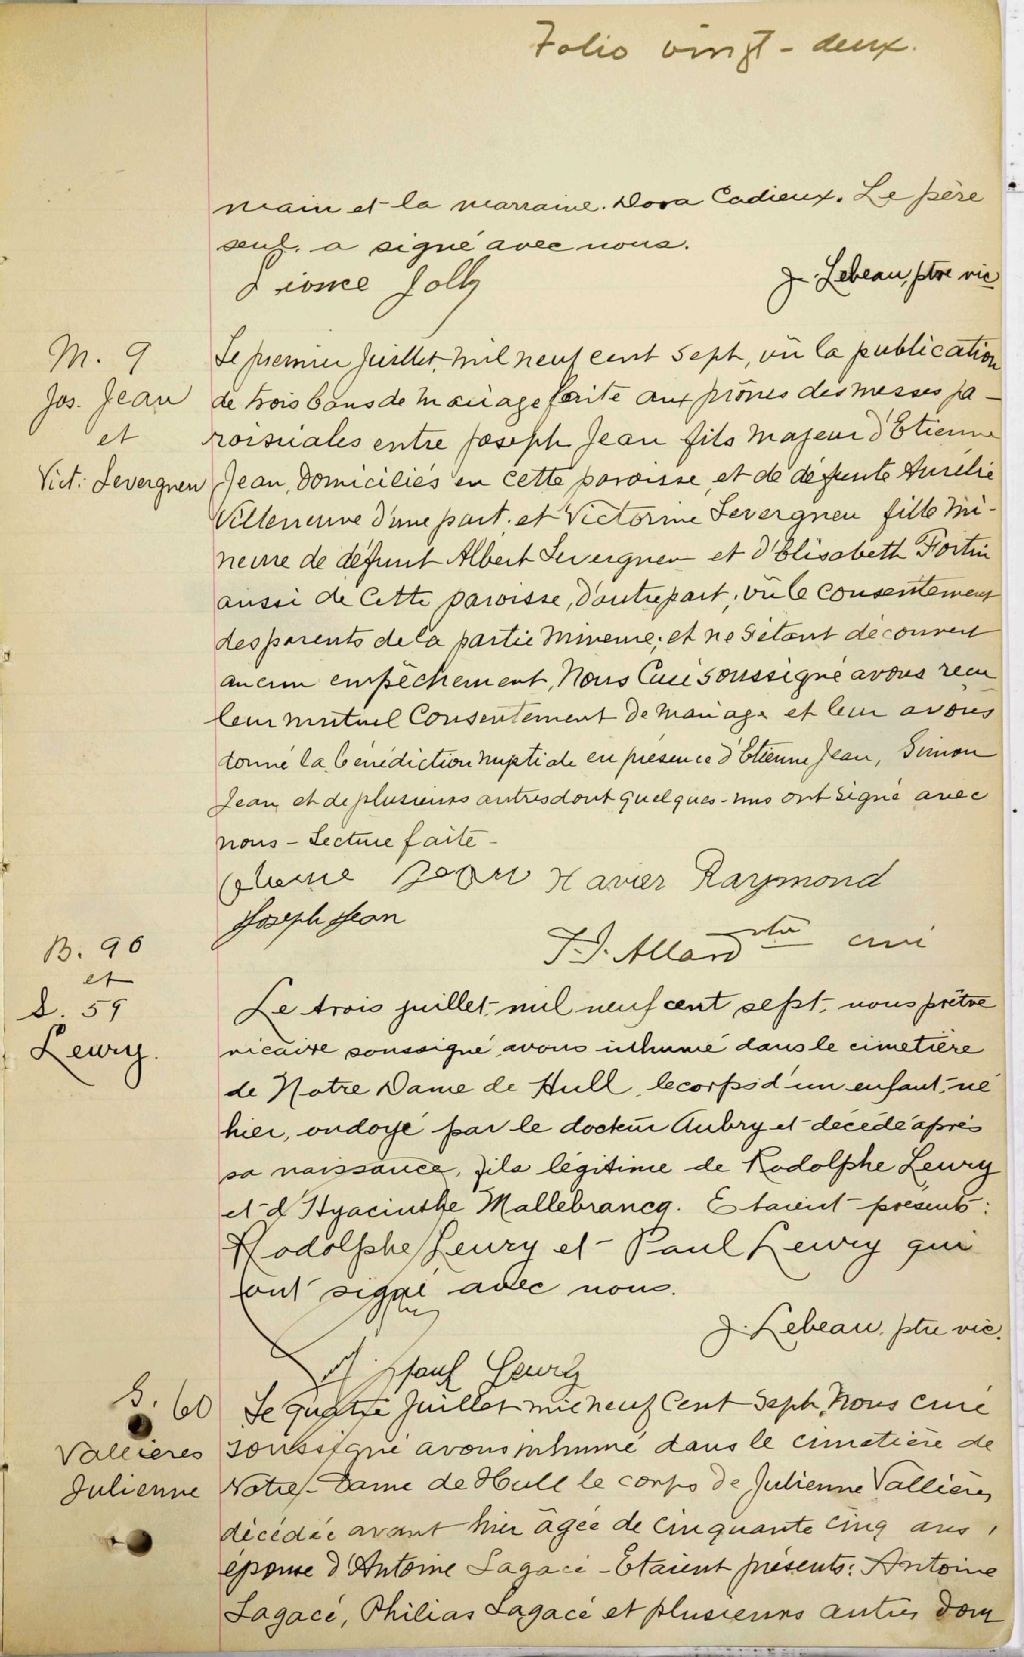 Folio vingt-deux.
main et la marraine. Dora Cadieux. Le père
seul. a signé avec nous.
Lionce Jolly
J. Lebeau, ptre vic
M. 9
Jos. Jean
et
Vict: Levergneu
Le premier Juillet, mil neuf cent sept, vû la publication
de trois bans de mariage faite aux prônes des messes pa-
roissiales entre Joseph Jean fils majeur d'Etienne
Jean, domiciliés en cette paroisse, et de défunte Aurélie
Villeneuve d'une part. et Victorine Levergneu fille mi-
neure de défunt Albert Levergneu et d'Elisabeth Fortin
aussi de cette paroisse, d'autre part; vû le consentement
des parents de la partie mineure; et ne s'étant découvert
aucun empêchement, Nous Curé soussigné avons reçu
leur mutuel consentement de mariage et leur avons
donné la bénédiction nuptiale en présence d'Etienne Jean, Simon
Jean et de plusieurs autres dont quelques-uns ont signé avec
nous - Lecture faite -
Jean Xavier Raymond
Joseph Jean
Allard ptre curé
B. 90
et
S. 59
Leury.
Le trois juillet, mil neuf cent sept, nous prêtre
vicaire soussigné avons inhumé dans le cimetière
de Notre Dame de Hull, le corps d'un enfant, né
hier, ondoyé par le docteur Aubry et décédé après
sa naissance, fils légitime de Rodolphe Leury
et d'Hyacinthe Mallebrancq. Etaient présents:
Rodolphe Leury et Paul Leury qui
ont signé avec nous.
J. Lebeau, ptre vic.
Paul Leury
S. 60
Vallières
Julienne
Le quatre Juillet mil neuf cent sept, Nous curé
soussigné avons inhumé dans le cimetière de
Notre-Dame de Hull le corps de Julienne Vallières
décédée avant hier âgée de cinquante cinq ans,
épouse d'Antoine Lagacé - Etaient présents: Antoine
Lagacé, Philias Lagacé et plusieurs autres dont